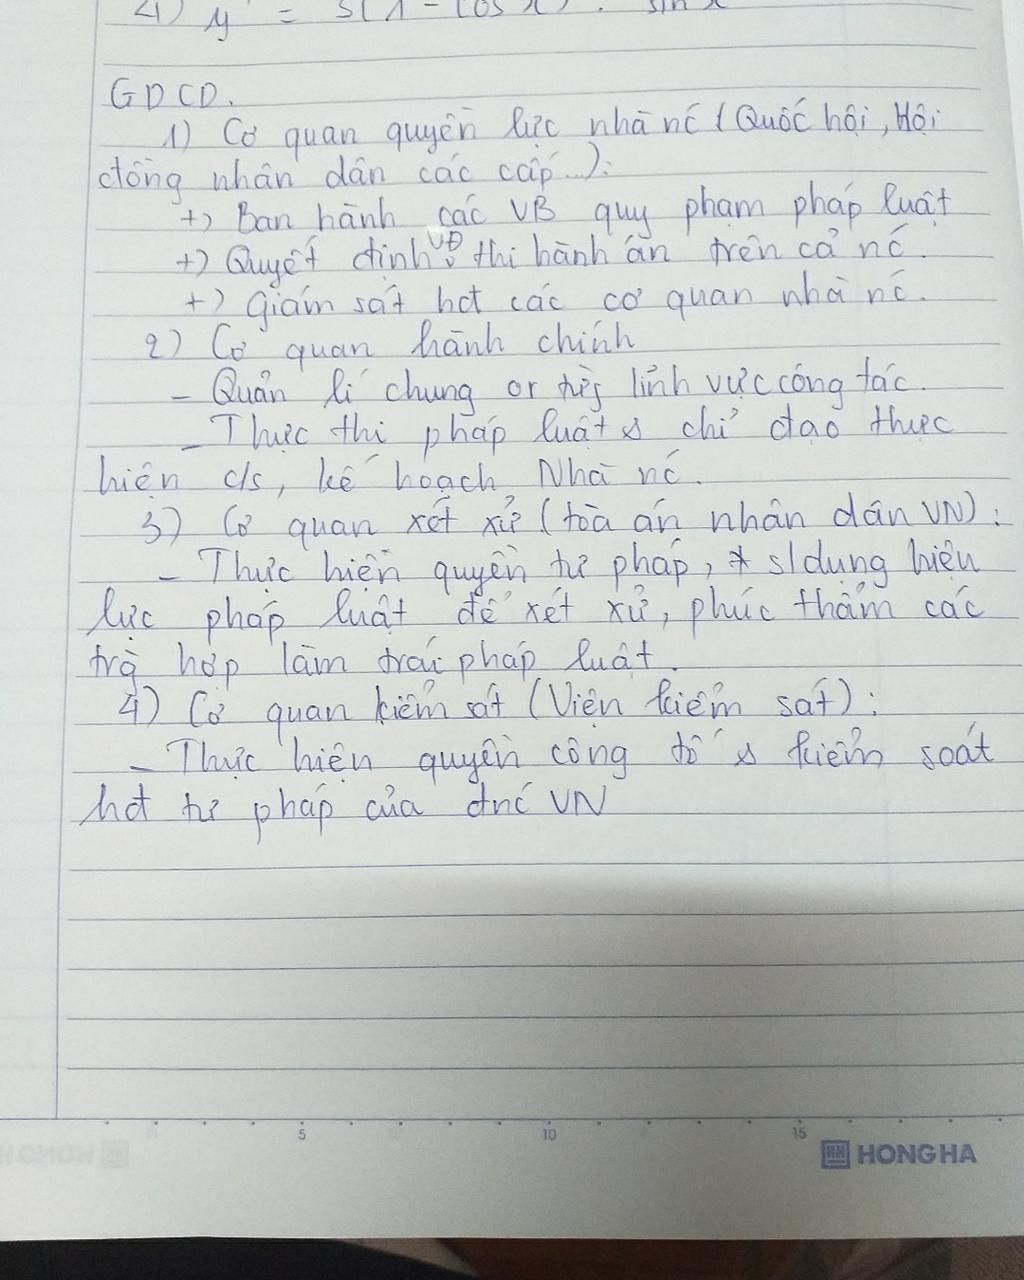 4) y' = 3(1 - cos x) . sin x
GDCD.
1) Cơ quan quyền lực nhà nc (Quốc hội, Hội
đồng nhân dân các cấp...):
+) Ban hành các VB quy phạm pháp luật
+) Quyết định VĐ thi hành án trên cả nc.
+) Giám sát hđ các cơ quan nhà nc.
2) Cơ quan hành chính
- Quản lí chung or từg lĩnh vực công tác.
- Thực thi pháp luật & chỉ đạo thực
hiện c/s, kế hoạch Nhà nc.
3) Cơ quan xét xử (tòa án nhân dân VN):
- Thực hiện quyền tư pháp, s/dụng hiệu
lực pháp luật để xét xử, phúc thẩm các
trg hợp làm trái pháp luật.
4) Cơ quan kiểm sát (Viện kiểm sát):
- Thực hiện quyền công tố & kiểm soát
hđ tư pháp của đnc VN
5 10 15
HONG HA